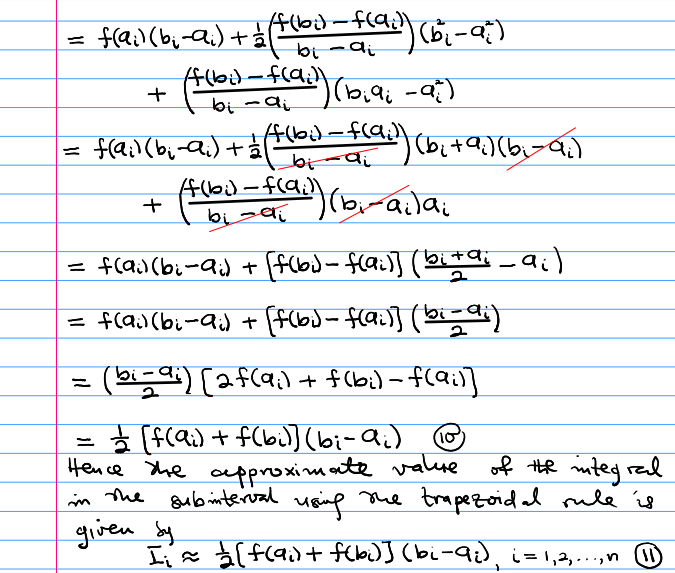 = f(aᵢ)(bᵢ-aᵢ) + ½((f(bᵢ) - f(aᵢ))/(bᵢ - aᵢ))(bᵢ² - aᵢ²)
+ ((f(bᵢ) - f(aᵢ))/(bᵢ - aᵢ))(bᵢaᵢ - aᵢ²)
= f(aᵢ)(bᵢ-aᵢ) + ½((f(bᵢ) - f(aᵢ))/(bᵢ - aᵢ))(bᵢ+aᵢ)(bᵢ-aᵢ)
+ ((f(bᵢ) - f(aᵢ))/(bᵢ - aᵢ))(bᵢ-aᵢ)aᵢ
= f(aᵢ)(bᵢ-aᵢ) + [f(bᵢ) - f(aᵢ)]((bᵢ+aᵢ)/2 - aᵢ)
= f(aᵢ)(bᵢ-aᵢ) + [f(bᵢ) - f(aᵢ)]((bᵢ-aᵢ)/2)
= ((bᵢ-aᵢ)/2)[2f(aᵢ) + f(bᵢ) - f(aᵢ)]
= ½[f(aᵢ) + f(bᵢ)](bᵢ-aᵢ) ⑩
Hence the approximate value of the integral
in the subinterval using the trapezoidal rule is
given by
Iᵢ ≈ ½[f(aᵢ) + f(bᵢ)](bᵢ-aᵢ), i=1,2,...,n ⑪